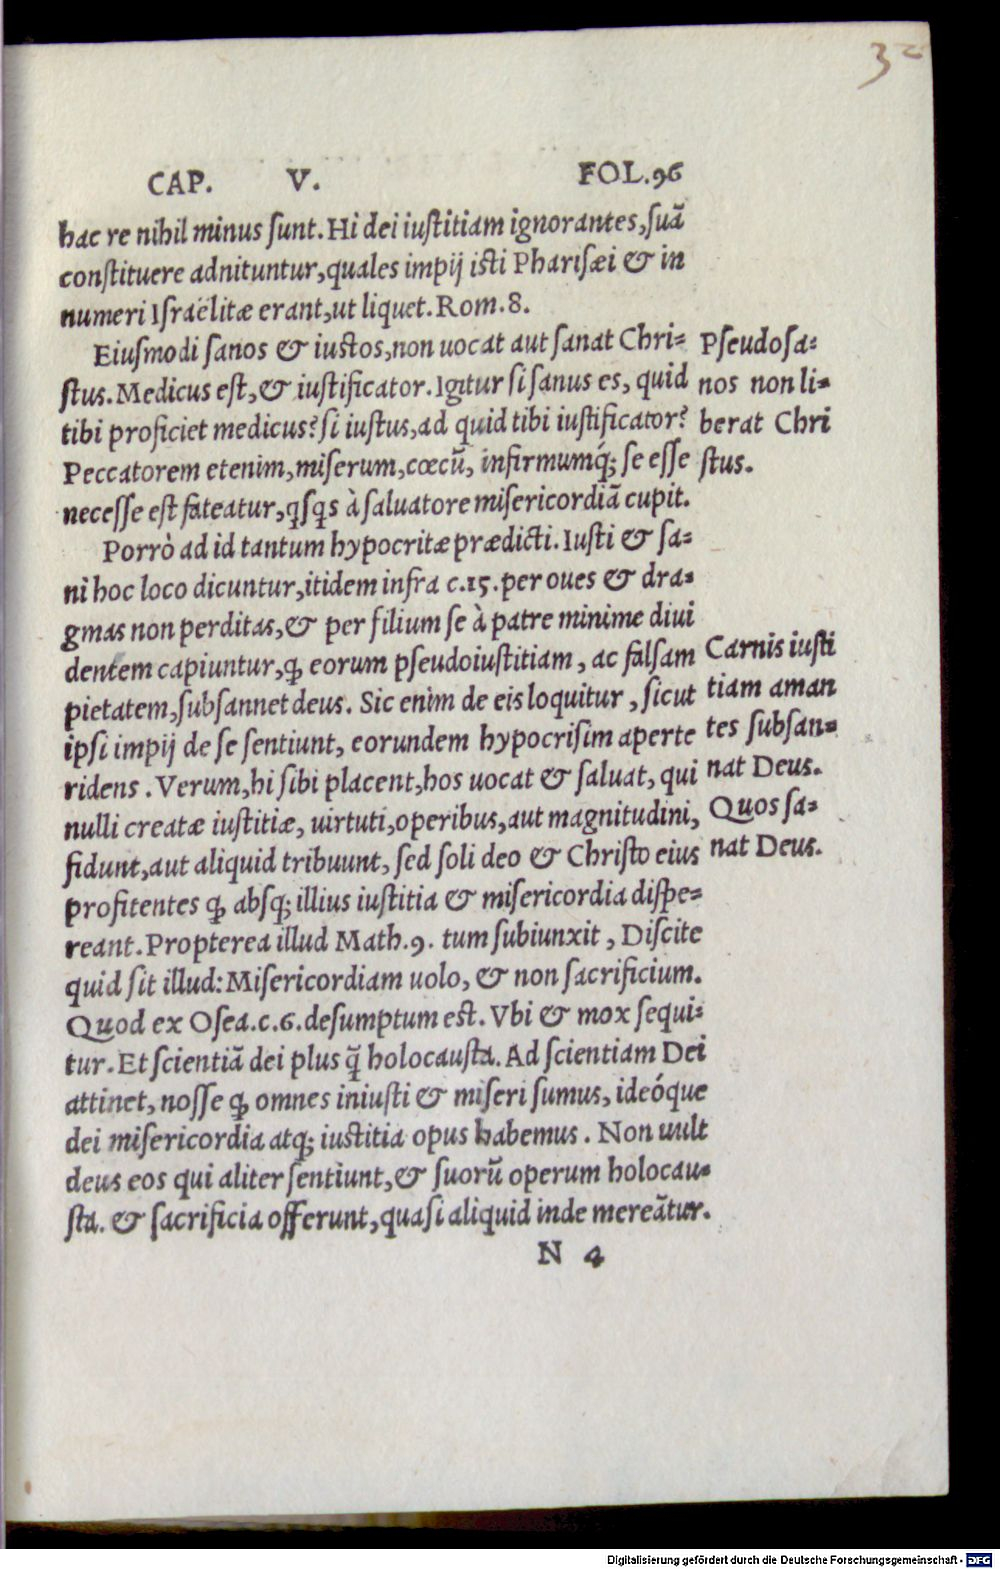 32
CAP. V. FOL.96
hac re nihil minus sunt. Hi dei iustitiam ignorantes, suã
constituere adnituntur, quales impij isti Pharisæi & in
numeri Israëlitæ erant, ut liquet. Rom. 8.
Eiusmodi sanos & iustos, non uocat aut sanat Chri-
stus. Medicus est, & iustificator. Igitur si sanus es, quid
tibi proficiet medicus? si iustus, ad quid tibi iustificator?
Peccatorem etenim, miserum, cœcũ, infirmumq́; se esse
necesse est fateatur, qsqs à saluatore misericordiã cupit.
Pseudosa-
nos non li-
berat Chri
stus.
Porrò ad id tantum hypocritæ prædicti. Iusti & sa-
ni hoc loco dicuntur, itidem infra c.15. per oues & dra-
gmas non perditas, & per filium se à patre minime diui
dentem capiuntur, ꝙ eorum pseudoiustitiam, ac falsam
pietatem, subsannet deus. Sic enim de eis loquitur, sicut
ipsi impij de se sentiunt, eorundem hypocrisim aperte
ridens. Verum, hi sibi placent, hos uocat & saluat, qui
nulli creatæ iustitiæ, uirtuti, operibus, aut magnitudini,
fidunt, aut aliquid tribuunt, sed soli deo & Christo eius
profitentes ꝙ absq; illius iustitia & misericordia dispe-
reant. Propterea illud Math.9. tum subiunxit, Discite
quid sit illud: Misericordiam uolo, & non sacrificium.
Quod ex Osea.c.6. desumptum est. Vbi & mox sequi-
tur. Et scientiã dei plus q̃ holocausta. Ad scientiam Dei
attinet, nosse ꝙ omnes iniusti & miseri sumus, ideóque
dei misericordia atq; iustitia opus habemus. Non uult
deus eos qui aliter sentiunt, & suorũ operum holocau-
sta. & sacrificia offerunt, quasi aliquid inde mereãtur.
Carnis iusti
tiam aman
tes subsan-
nat Deus.
Quos sa-
nat Deus.
N 4
Digitalisierung gefördert durch die Deutsche Forschungsgemeinschaft - DFG